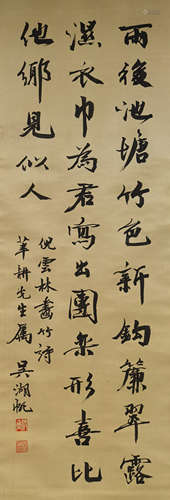 雨後池塘竹色新鈎簾翠露
濕衣巾為君寫出團欒形喜比
他鄉見似人
倪雲林畫竹詩
耕先生屬 吳湖帆